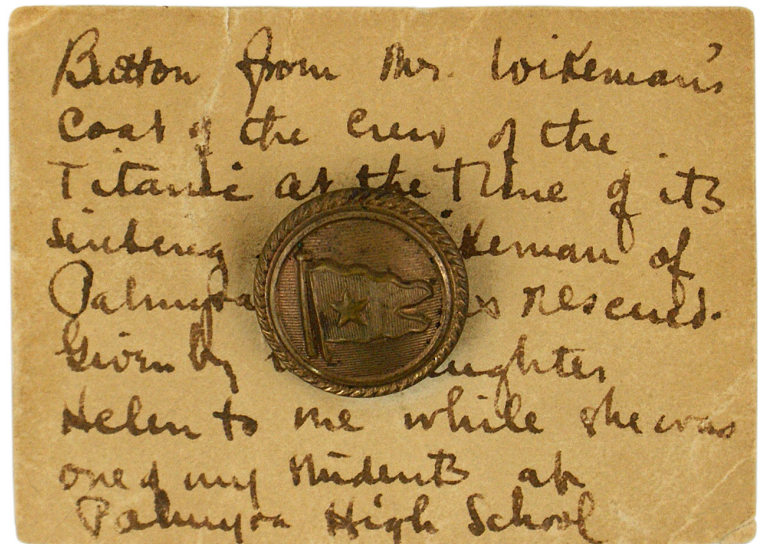 Button from Mr. Wikeman's
Coat of the Crew of the
Titanic at the Time of its
sinking keman of
Palmyra s rescued.
Given by ughter
Helen to me while she was
one of my students at
Palmyra High School